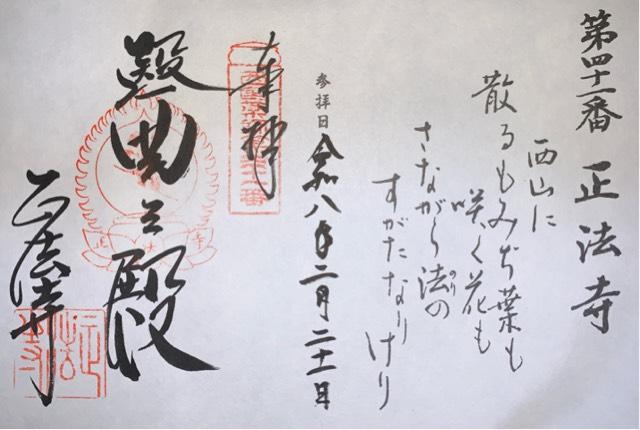 第四十一番 正法寺
西山に
散るもみぢ葉も
咲く花も
さながら法の
のり
すがたなりけり
参拝日 令和八年二月二十一日
奉拝
殿
正法寺